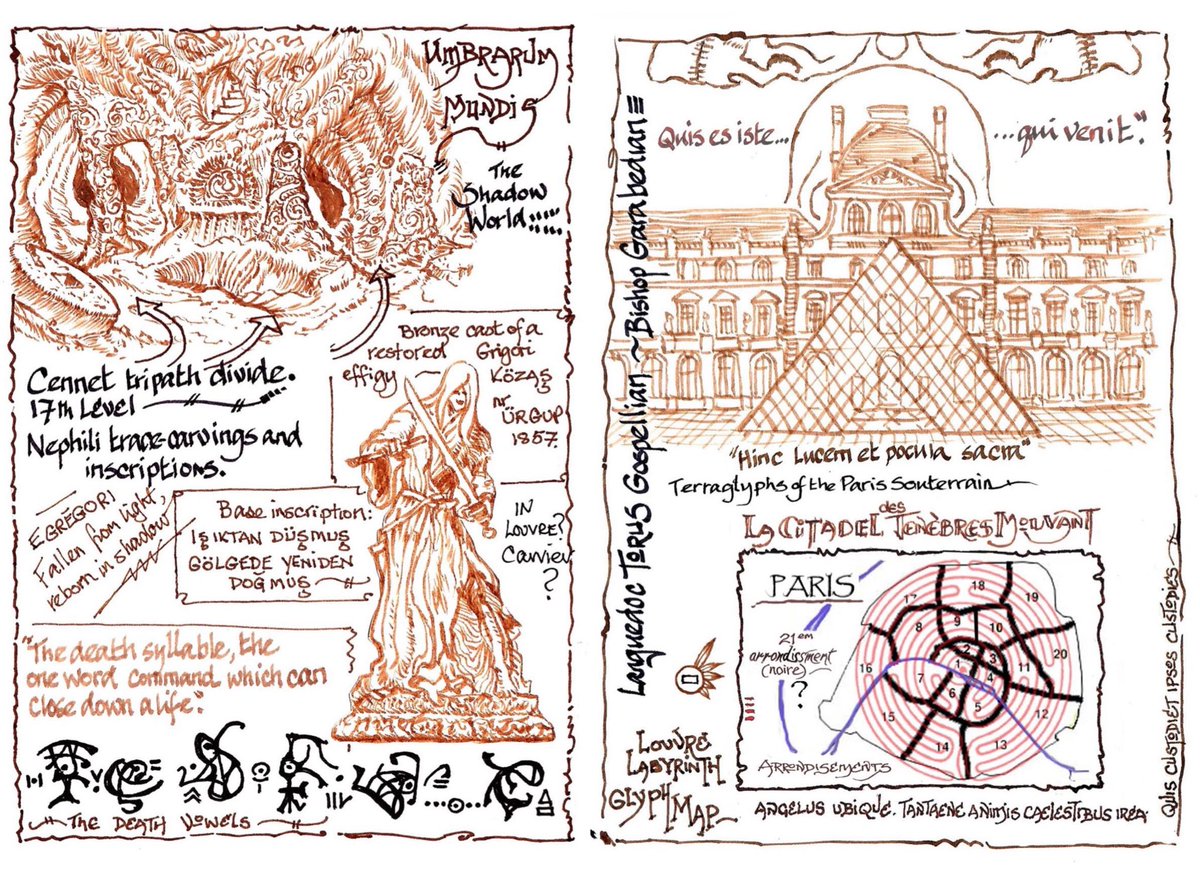 UMBRARUM
MUNDIS
The
Shadow
World
Cennet tripath divide.
17th Level
Nephili trace-carvings and
inscriptions.
Bronze cast of a
restored Grigori
effigy KÖZAŞ
nr ÜRGUP
1857.
EGRĒGORI
Fallen from light,
reborn in shadow
Base inscription:
IŞIKTAN DÜŞMUŞ
GÖLGEDE YENIDEN
DOĞMUŞ
IN
LOUVRE?
Cauvier
?
"The death syllable, the
one word command which can
close down a life".
THE DEATH VOWELS
Languedoc TORUS Gospellian ~ Bishop Garabedian
Quis es iste... ...qui venit".
"Hinc lucem et pocula sacra"
Terraglyphs of the Paris Souterrain
des
LA CITADEL TENÈBRES MOUVANT
PARIS
21em
arrondissment
(noire)
?
18
17
19
9
10
8
2
3
20
1
11
16
7
4
6
5
12
15
14
13
ARRONDISEMENTS
LOUVRE
LABYRINTH
GLYPH MAP
ANGELUS UBIQUE. TANTAENE ANIMIS CAELESTIBUS IREA
QUIS CUSTODIET IPSES CUSTODIES